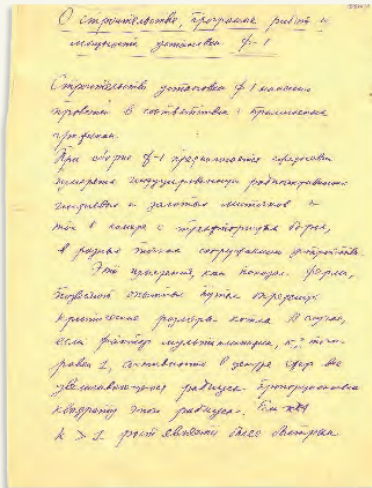 О строительстве, программа работ и
мощности установки Ф-1
Строительство установки Ф-1
провести в соответствии с
графиком.
При сборке Ф-1 предполагается
измерять индуцированную радиоактивность
индиевых и золотых листочков и
ток в камере с трехфтористым бором,
в разных точках сооружаемого устройства.
Эти измерения, как показал Ферми,
опытным путем
критические размеры котла. В случае,
если фактор мультипликации, k,
равен 1, в центре сферы все
увеличивающегося радиуса пропорциональна
квадрату этого радиуса. Если
k > 1 рост является более быстрым